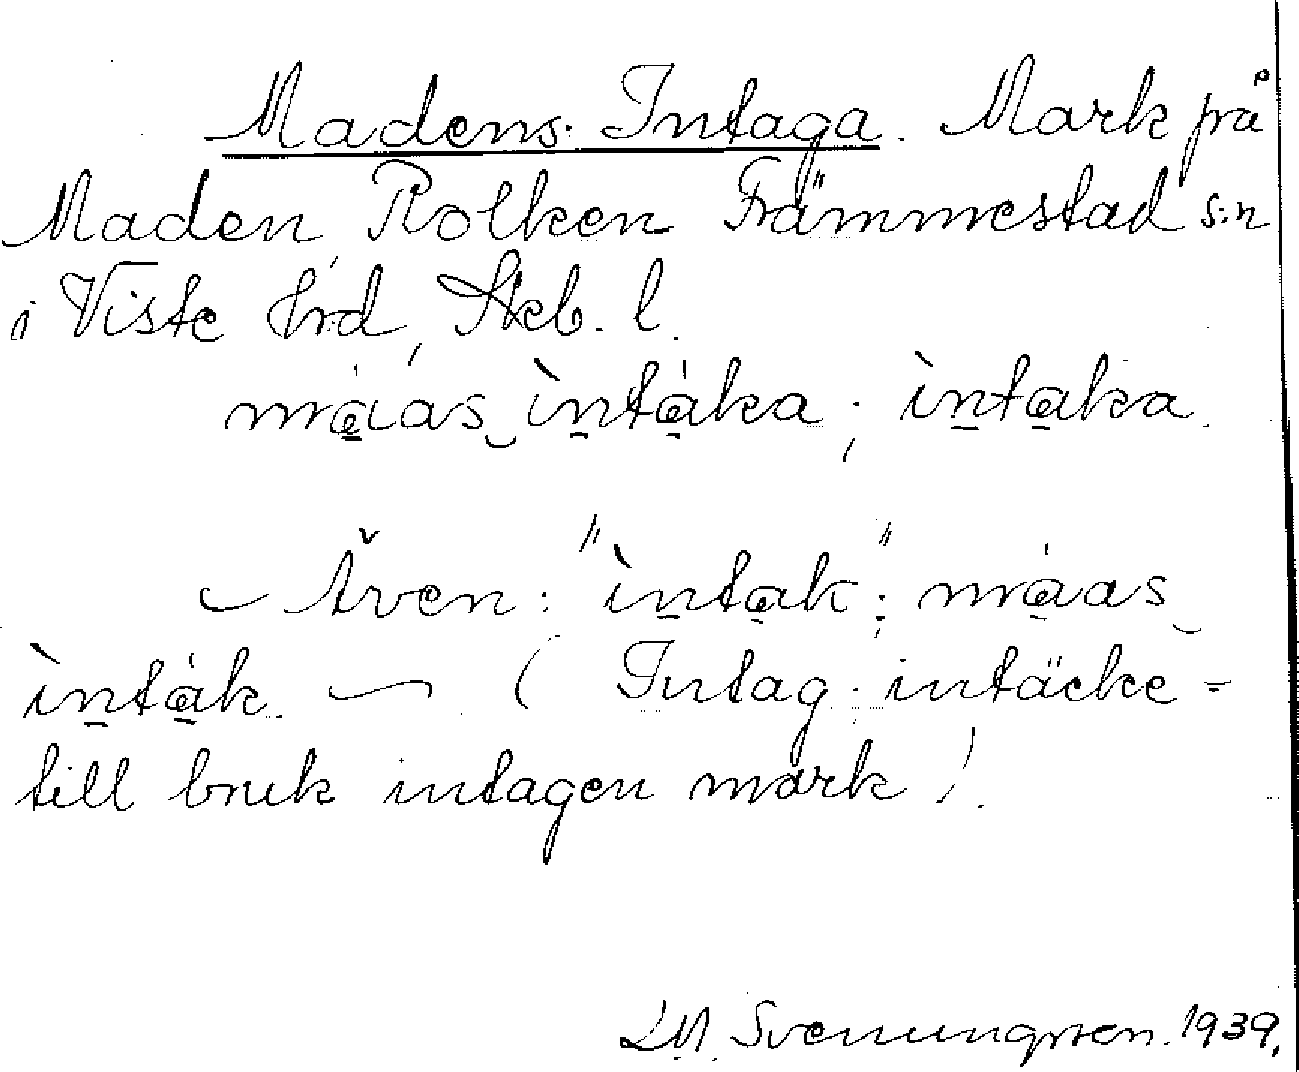 Madens Intaga. Mark på
Maden, Rolken Främmestad s:n
i Viste hrd, Skb. l.
mạ́as ìntạ́ka; ìntạka.
— Även: "ìntạk"; mạ́as
ìntạ́k. — ( Intag: intäcke =
till bruk intagen mark ).
Svenungsson. 1939.